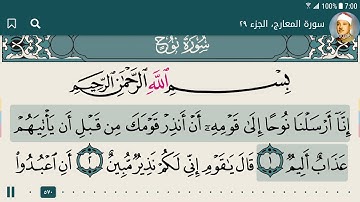 7:00
سورة المعارج، الجزء ٢٩
سُورَةُ نُوحٍ
بِسْمِ اللَّهِ الرَّحْمَٰنِ الرَّحِيمِ
إِنَّآ أَرْسَلْنَا نُوحًا إِلَىٰ قَوْمِهِۦٓ أَنْ أَنذِرْ قَوْمَكَ مِن قَبْلِ أَن يَأْتِيَهُمْ
عَذَابٌ أَلِيمٌ ١ قَالَ يَٰقَوْمِ إِنِّي لَكُمْ نَذِيرٌ مُّبِينٌ ٢ أَنِ ٱعْبُدُوا۟
٥٧٠